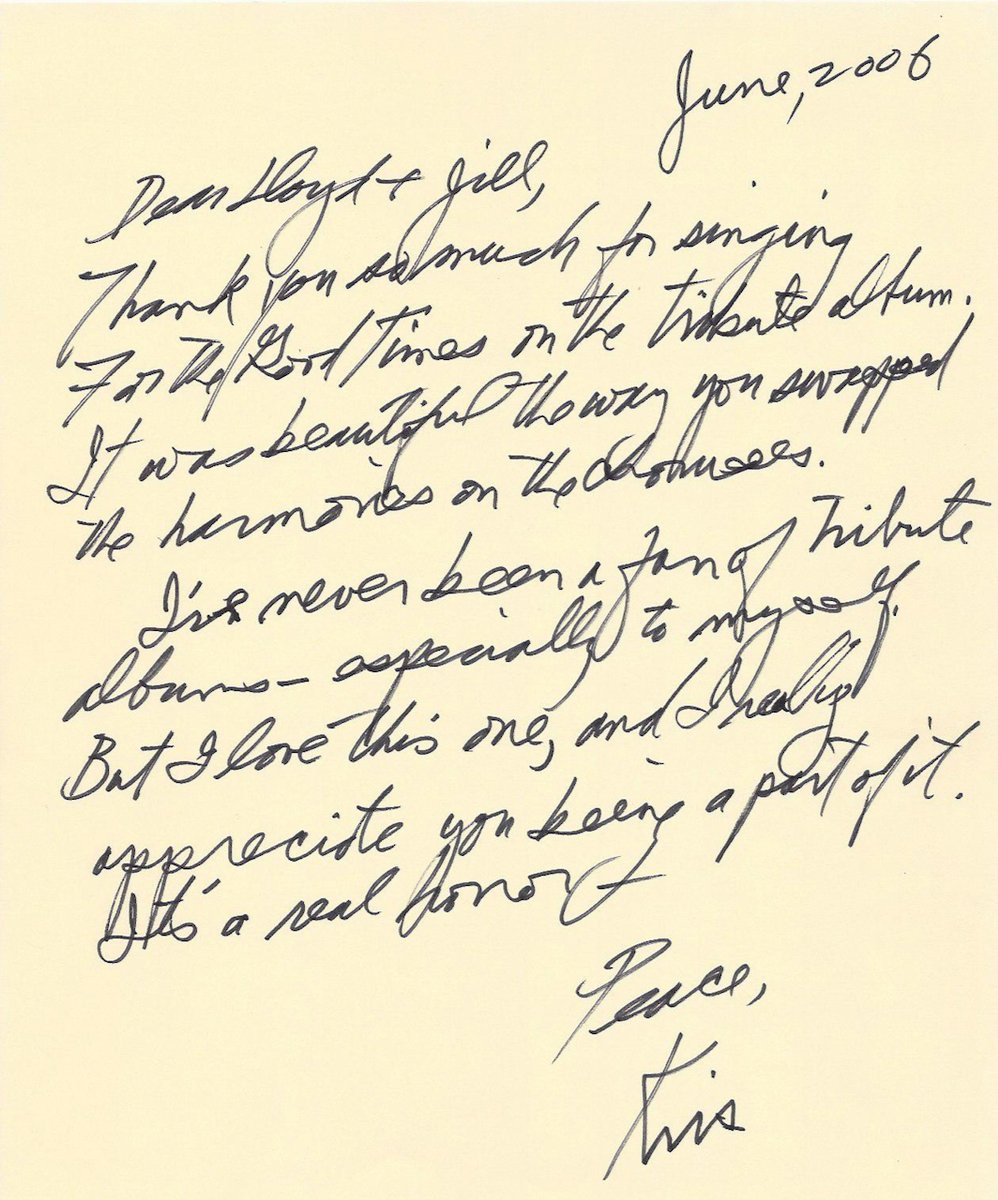 June, 2006
Dear Lloyd + Jill,
Thank you so much for singing
For The Good Times on the tribute album.
It was beautiful the way you swapped
the harmonies on the choruses.
I've never been a fan of tribute
albums – especially to myself.
But I love this one, and I really
appreciate you being a part of it.
It's a real honor
Peace,
Kris